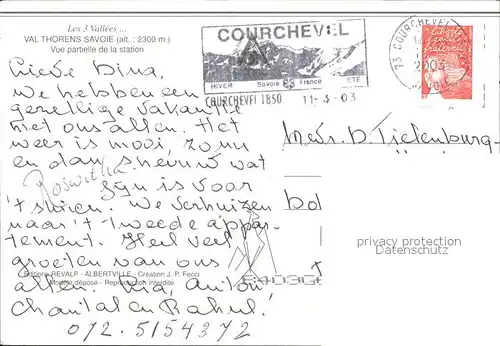 Les 3 Vallées ...
VAL THORENS SAVOIE (alt. : 2300 m.)
Vue partielle de la station
Lieve Dina,
We hebben een
gezellige vakantie
met ons allen. Het
weer is mooi, zo nu
en dan sneeuw wat
Roswitha
fijn is voor
't skiën. We verhuizen
naar 't tweede appar-
tement. Heel veel
groeten van ons
allen. Ria, Anton
Chantal en Rahul.
072.5154372
Editions REVALP - ALBERTVILLE - Création J.-P. Fecci
Modèle déposé - Reproduction interdite
COURCHEVEL
HIVER Savoie France ETE
COURCHEVEL 1850 11-3-03
73 COURCHEVEL
2003
SAVOIE
Mevr. D. Tielenburg-
privacy protection
Datenschutz